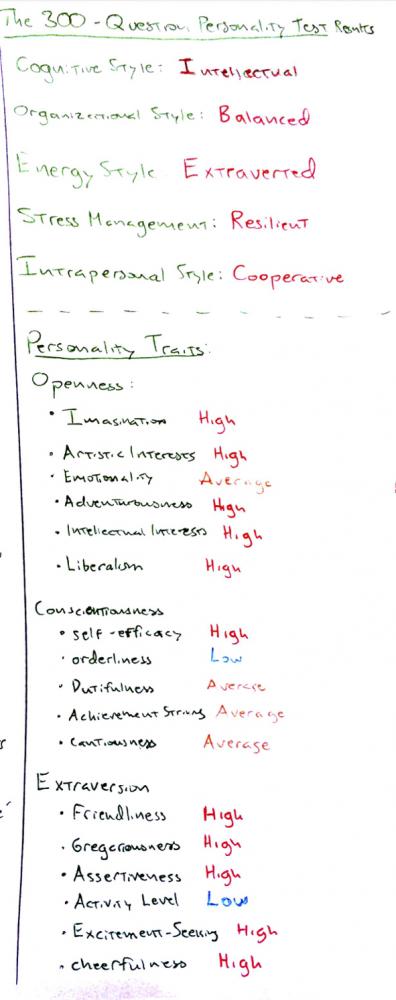 The 300-Question Personality Test Results
Cognitive Style: Intellectual
Organizational Style: Balanced
Energy Style Extraverted
Stress Management: Resilient
Intrapersonal Style: Cooperative
Personality Traits:
Openness:
• Imagination High
• Artistic Interests High
• Emotionality Average
• Adventurousness High
• Intellectual Interests High
• Liberalism High
Conscientiousness
• self-efficacy High
• orderliness Low
• Dutifulness Average
• Achievement Striving Average
• Cautiousness Average
Extraversion
• Friendliness High
• Gregariousness High
• Assertiveness High
• Activity Level Low
• Excitement-Seeking High
• cheerfulness High